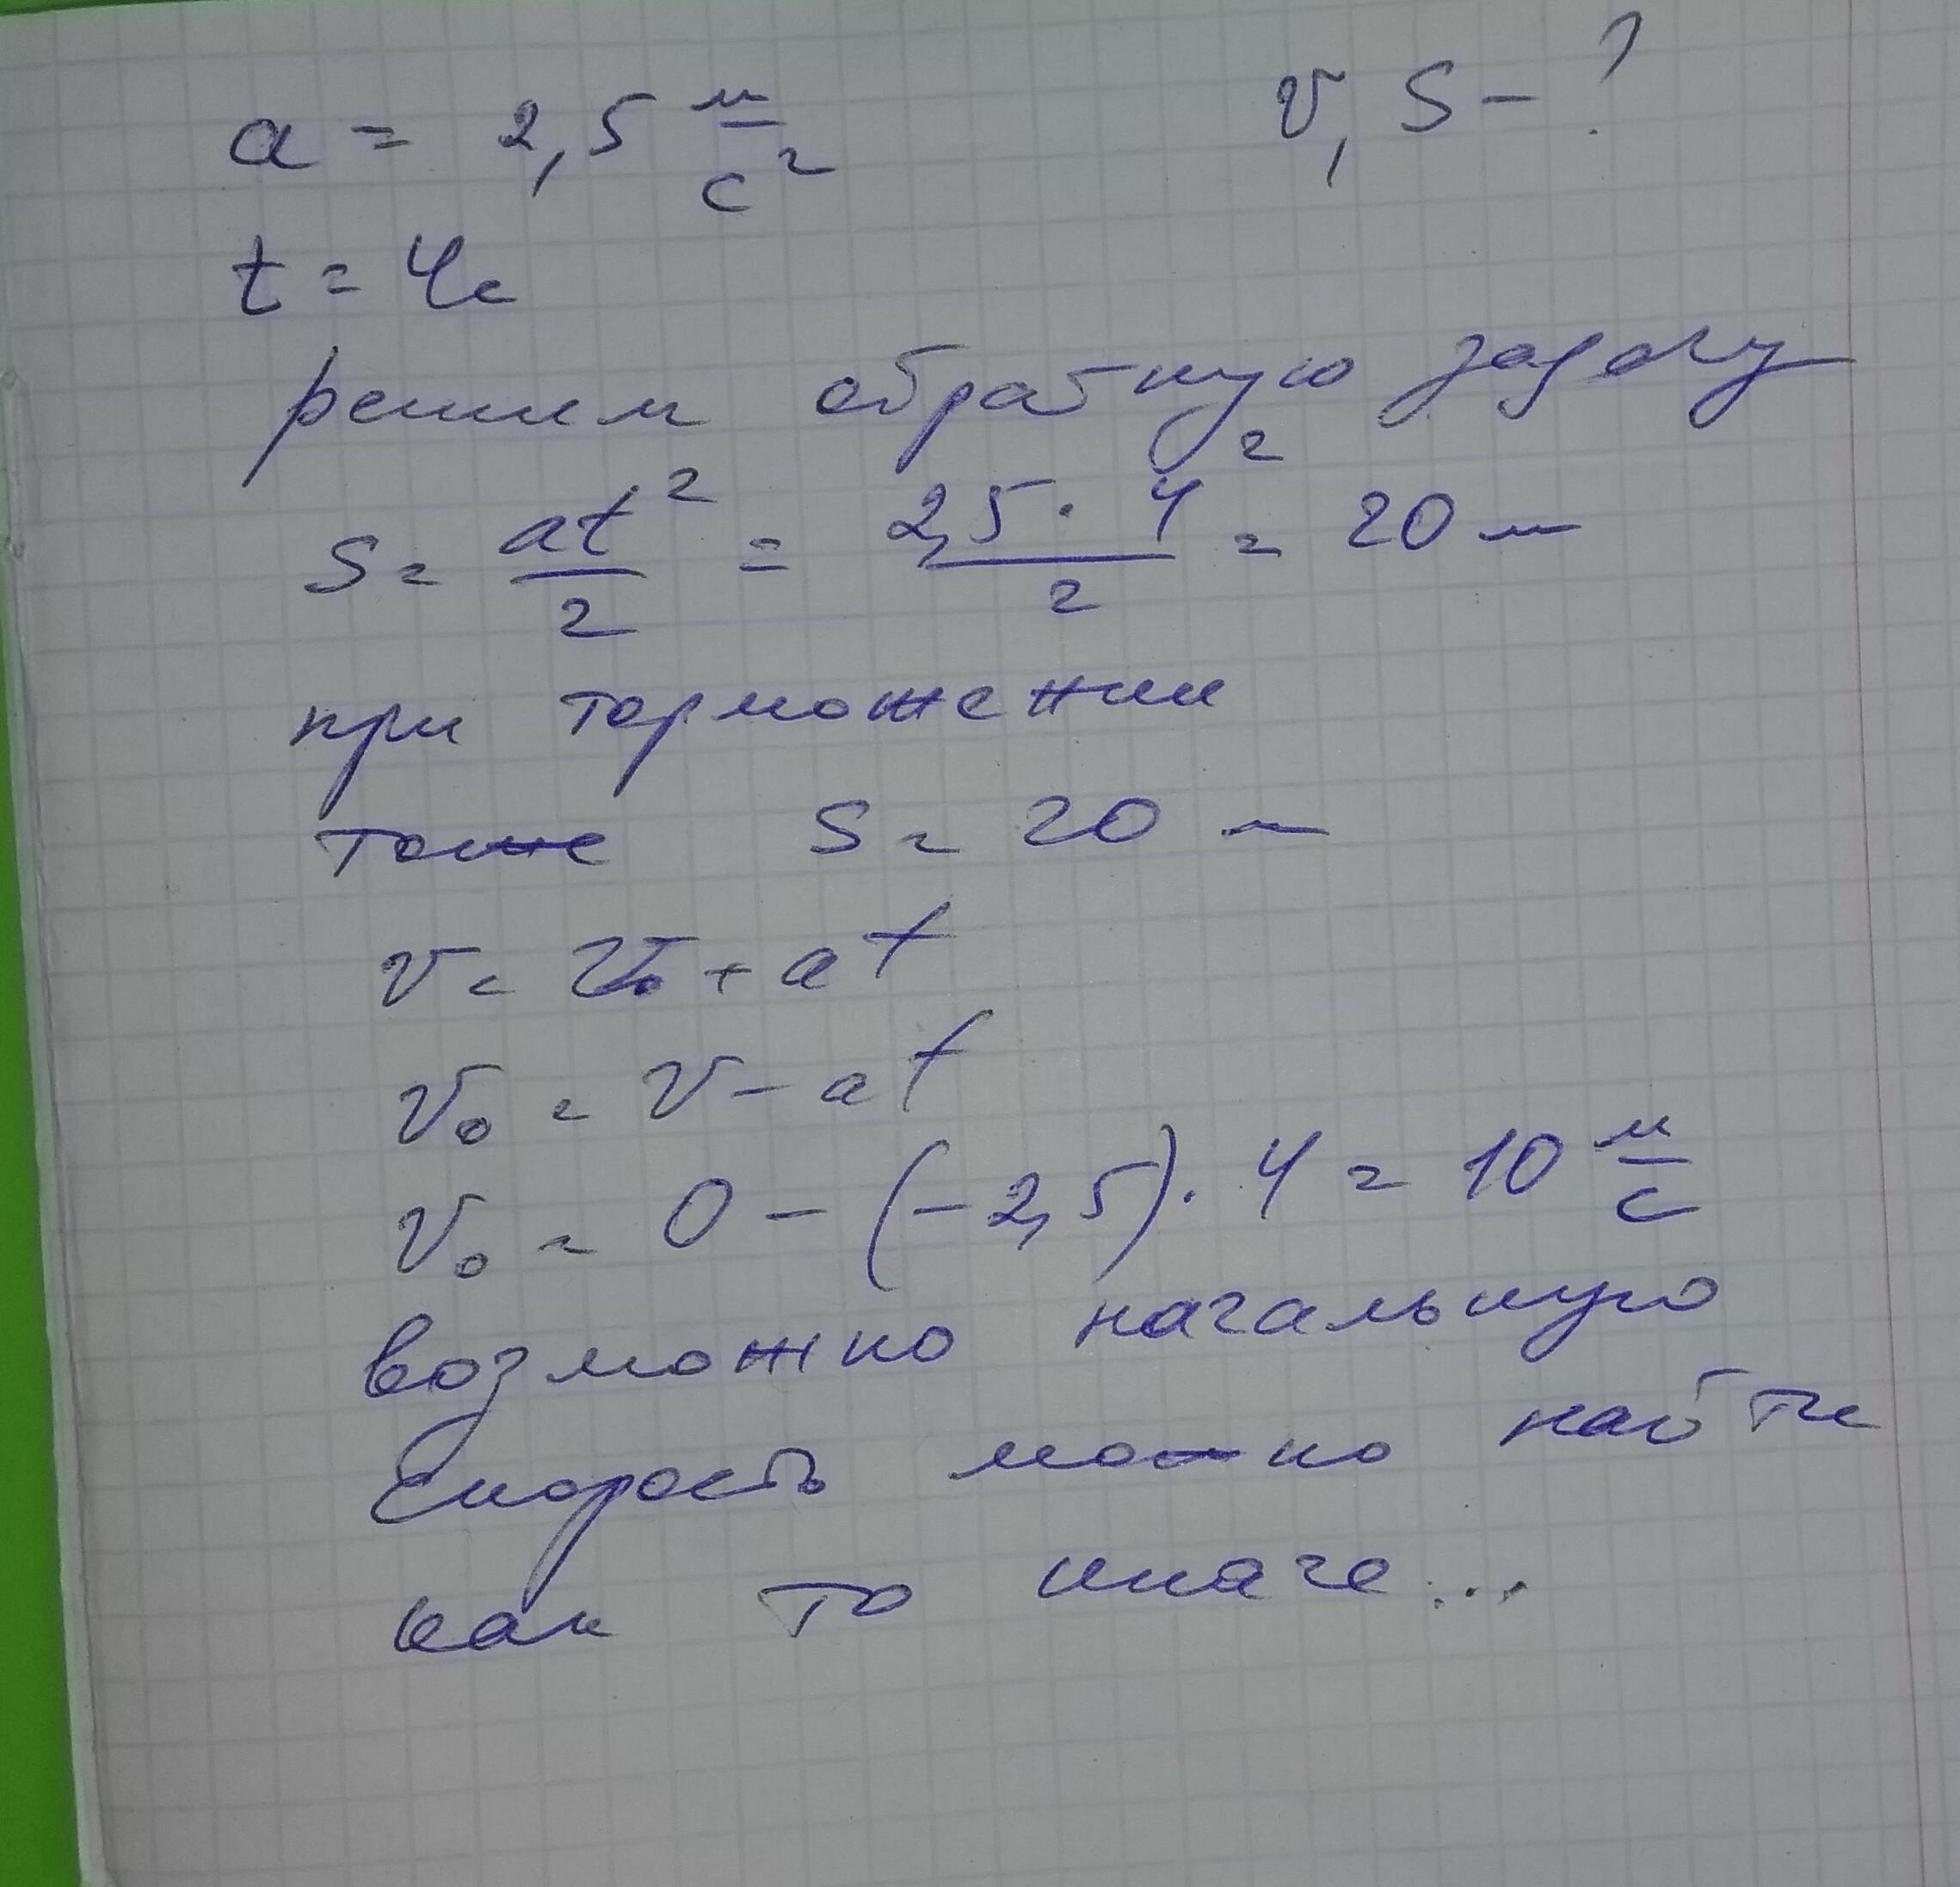 a = 2,5 м/с² v, S - ?
t = 4с
решим обратную задачу
S = at²/2 = 2,5 · 4²/2 = 20 м
при торможении
тоже S = 20 м
v = v₀ + at
v₀ = v - at
v₀ = 0 - (-2,5) · 4 = 10 м/с
возможно начальную
скорость можно найти
как то иначе...